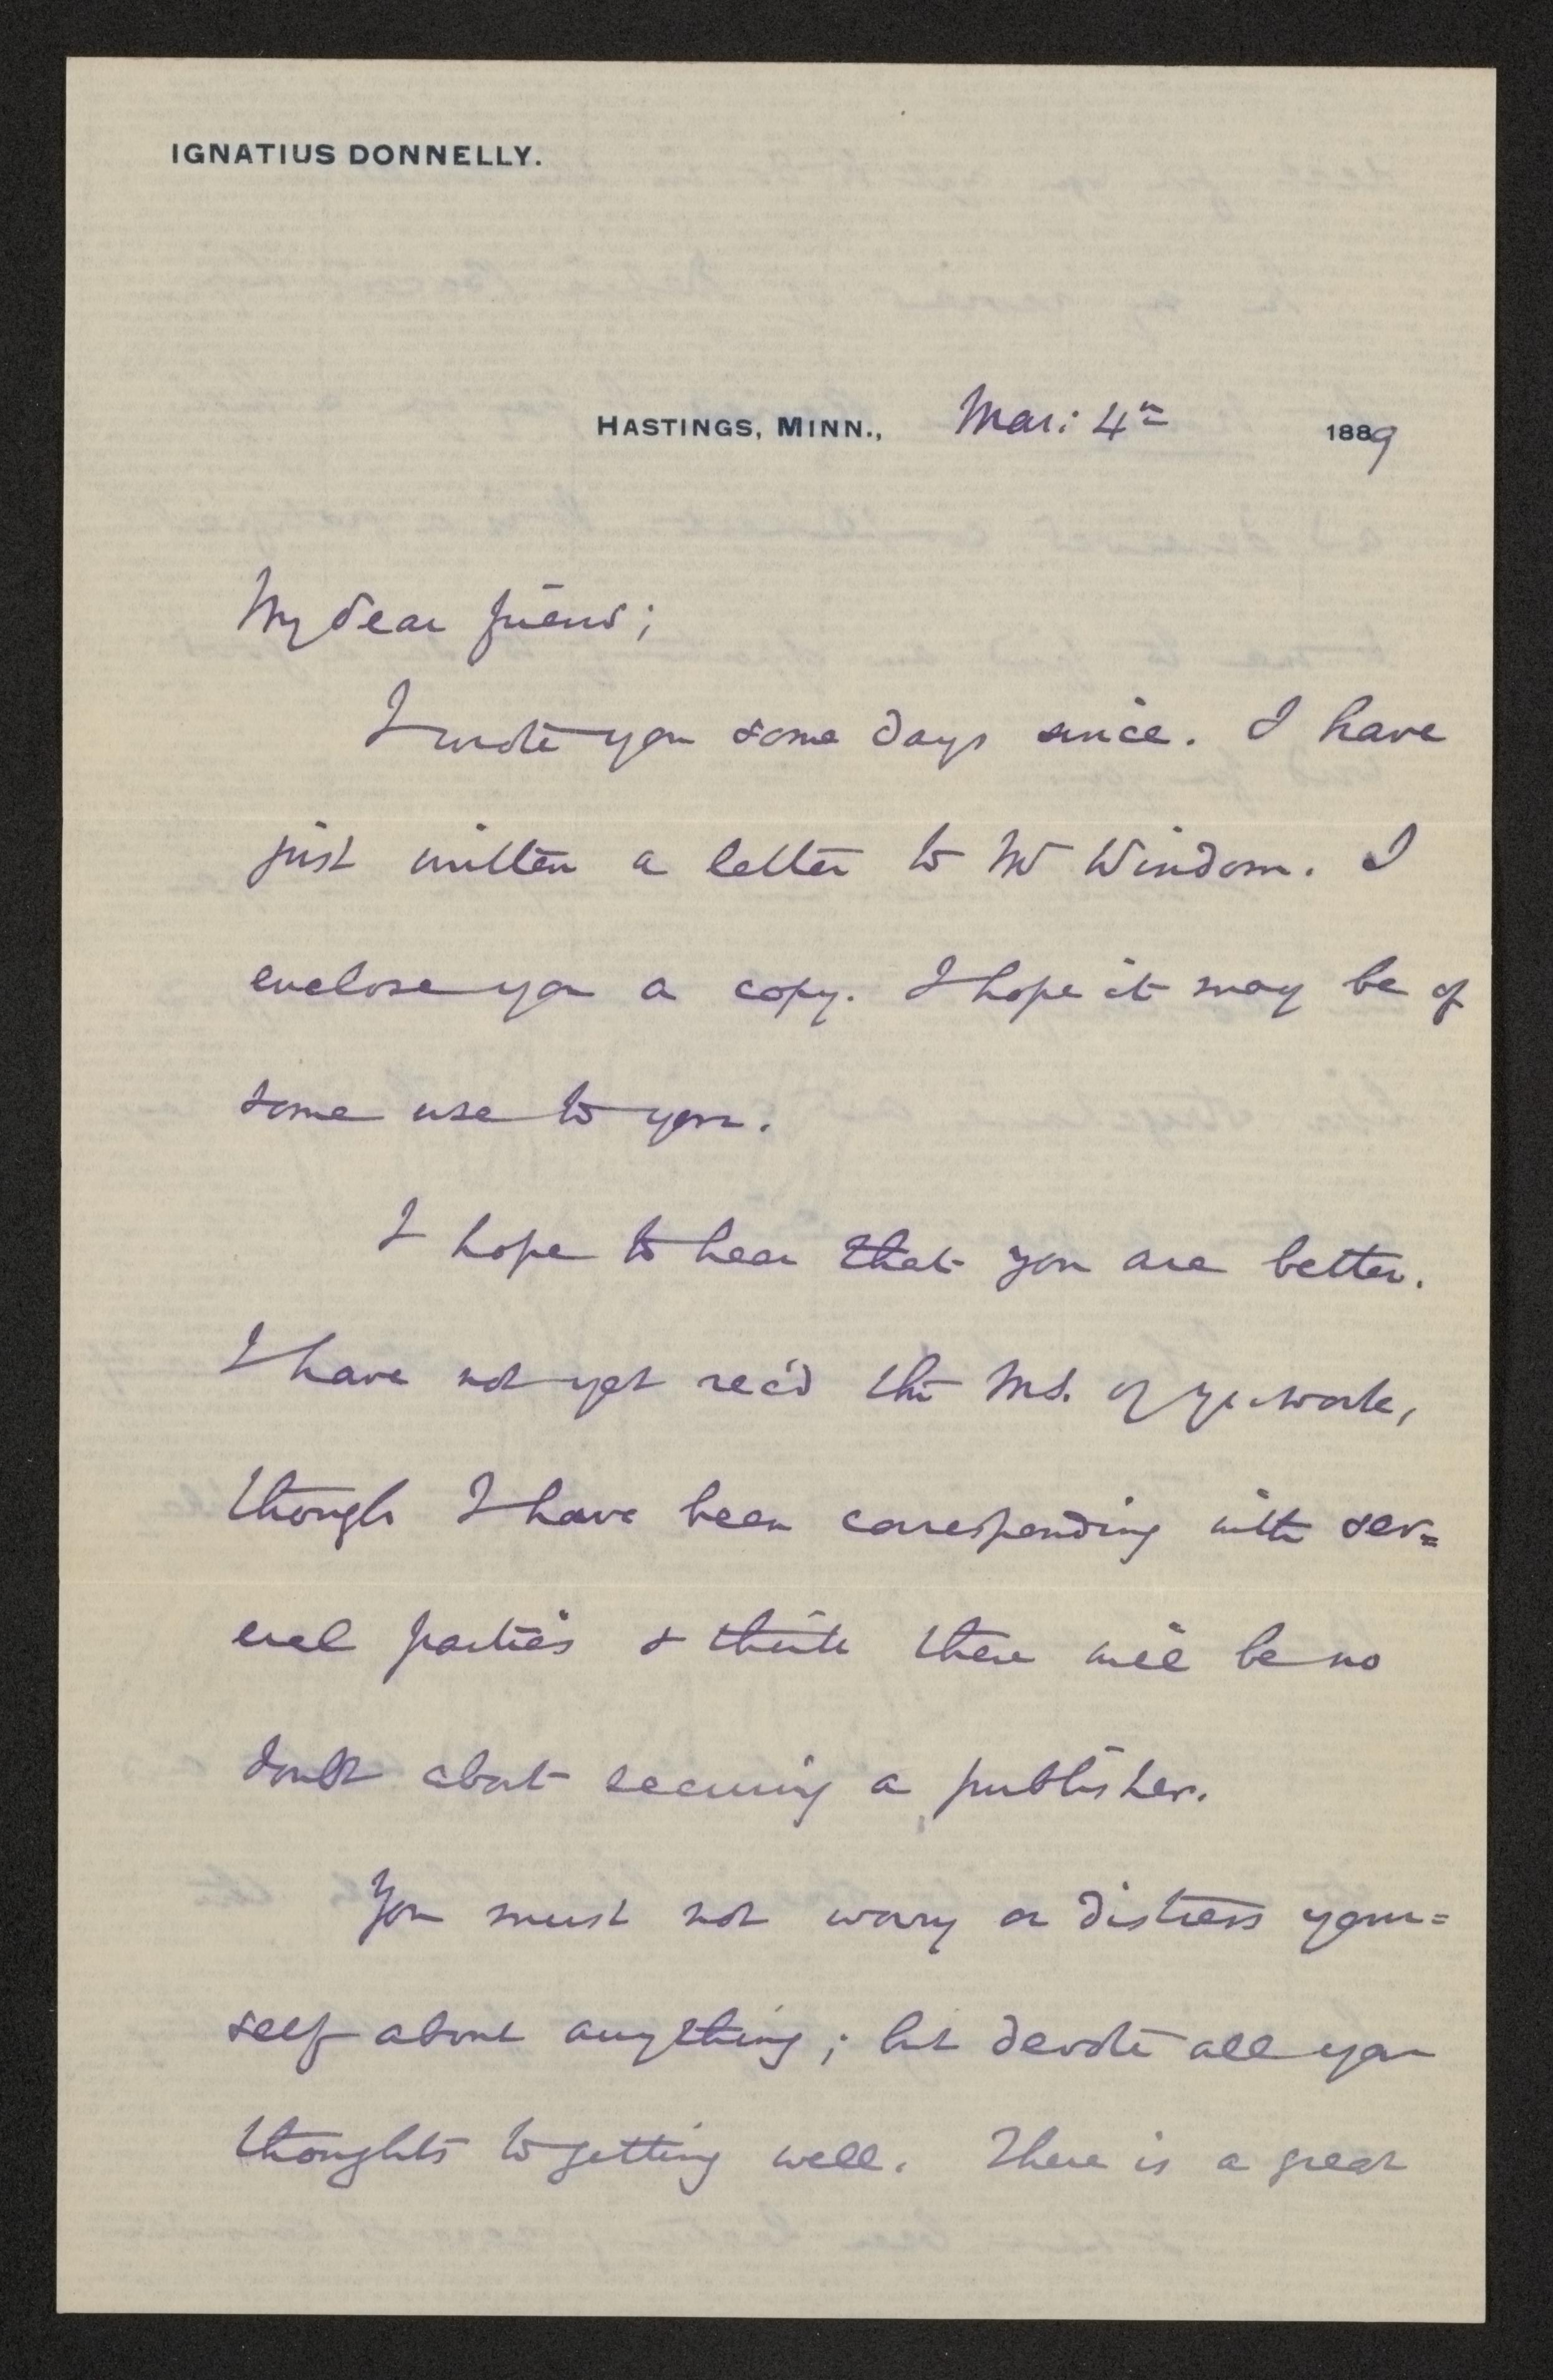 IGNATIUS DONNELLY.
HASTINGS, MINN., Mar: 4th 1889
My dear friend;
I wrote you some days since. I have
just written a letter to Mr Windom. I
enclose you a copy. I hope it may be of
some use to you.
I hope to hear that you are better.
I have not yet rec'd the MS. of yr. work,
though I have been corresponding with sev=
eral parties & think there will be no
doubt about securing a publisher.
You must not worry or distress your=
self about anything; but devote all your
thoughts to getting well. There is a great